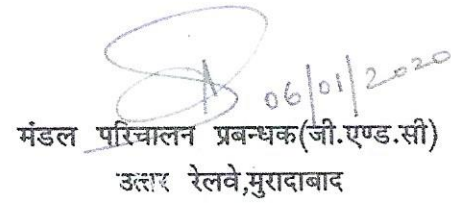 06/01/2020
मंडल परिचालन प्रबन्धक(जी.एण्ड.सी)
उत्तर रेलवे,मुरादाबाद